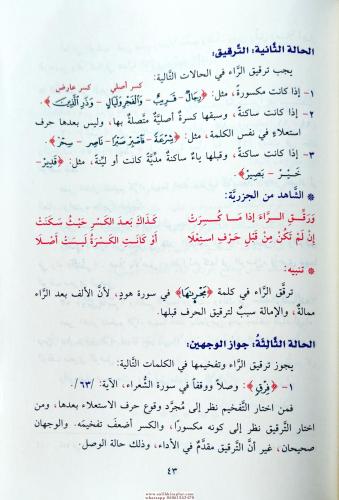 الحالة الثَّانية: التَّرقيق:
يجب ترقيق الرَّاء في الحالات التَّالية:
كسر أصلي كسر عارض
١- إذا كانت مكسورة، مثل: ﴿رِجَالٌ - قَرِيبٌ - وَالْفَجْرِ وَلَيَالٍ - وَذَرِ الَّذِينَ﴾.
٢- إذا كانت ساكنة، وسبقها كسرة أصليَّة متَّصلة بها، وليس بعدها حرف
استعلاء في نفس الكلمة، مثل: ﴿شِرْعَةً - فَاصْبِرْ صَبْرًا - نَاصِرٍ - سِحْرٌ﴾.
٣- إذا كانت ساكنة، وقبلها ياء ساكنة مدِّيَّة كانت أو ليِّنة، مثل: ﴿قَدِيرٌ -
خَيْرٌ - بَصِيرٌ﴾.
* الشَّاهد من الجزريَّة:
وَرَقِّقِ الرَّاءَ إِذَا مَا كُسِرَتْ كَذَاكَ بَعدَ الكَسْرِ حَيْثُ سَكَنَتْ
إِنْ لَمْ تَكُنْ مِنْ قَبْلِ حَرْفِ اسْتِعْلَا أَوْ كَانَتِ الكَسْرَةُ لَيسَتْ أَصْلَا
* تنبيه:
ترقَّق الرَّاء في كلمة ﴿مَجْر۪ىٰهَا﴾ في سورة هود، لأنَّ الألف بعد الرَّاء
ممالةٌ، والإمالة سببٌ لترقيق الحرف قبلها.
الحالة الثَّالثة: جواز الوجهين:
يجوز ترقيق الرَّاء وتفخيمها في الكلمات التَّالية:
١- ﴿فِرْقٍ﴾: وصلاً ووقفاً في سورة الشُّعراء، الآية: /٦٣/.
فمن اختار التَّفخيم نظر إلى مُجرَّد وقوع حرف الاستعلاء بعدها، ومن
اختار التَّرقيق نظر إلى كونه مكسورًا، والكسر أضعفَ تفخيمَه. والوجهان
صحيحان، غير أنَّ التَّرقيق مقدَّمٌ في الأداء، وذلك حالة الوصل.
٤٣